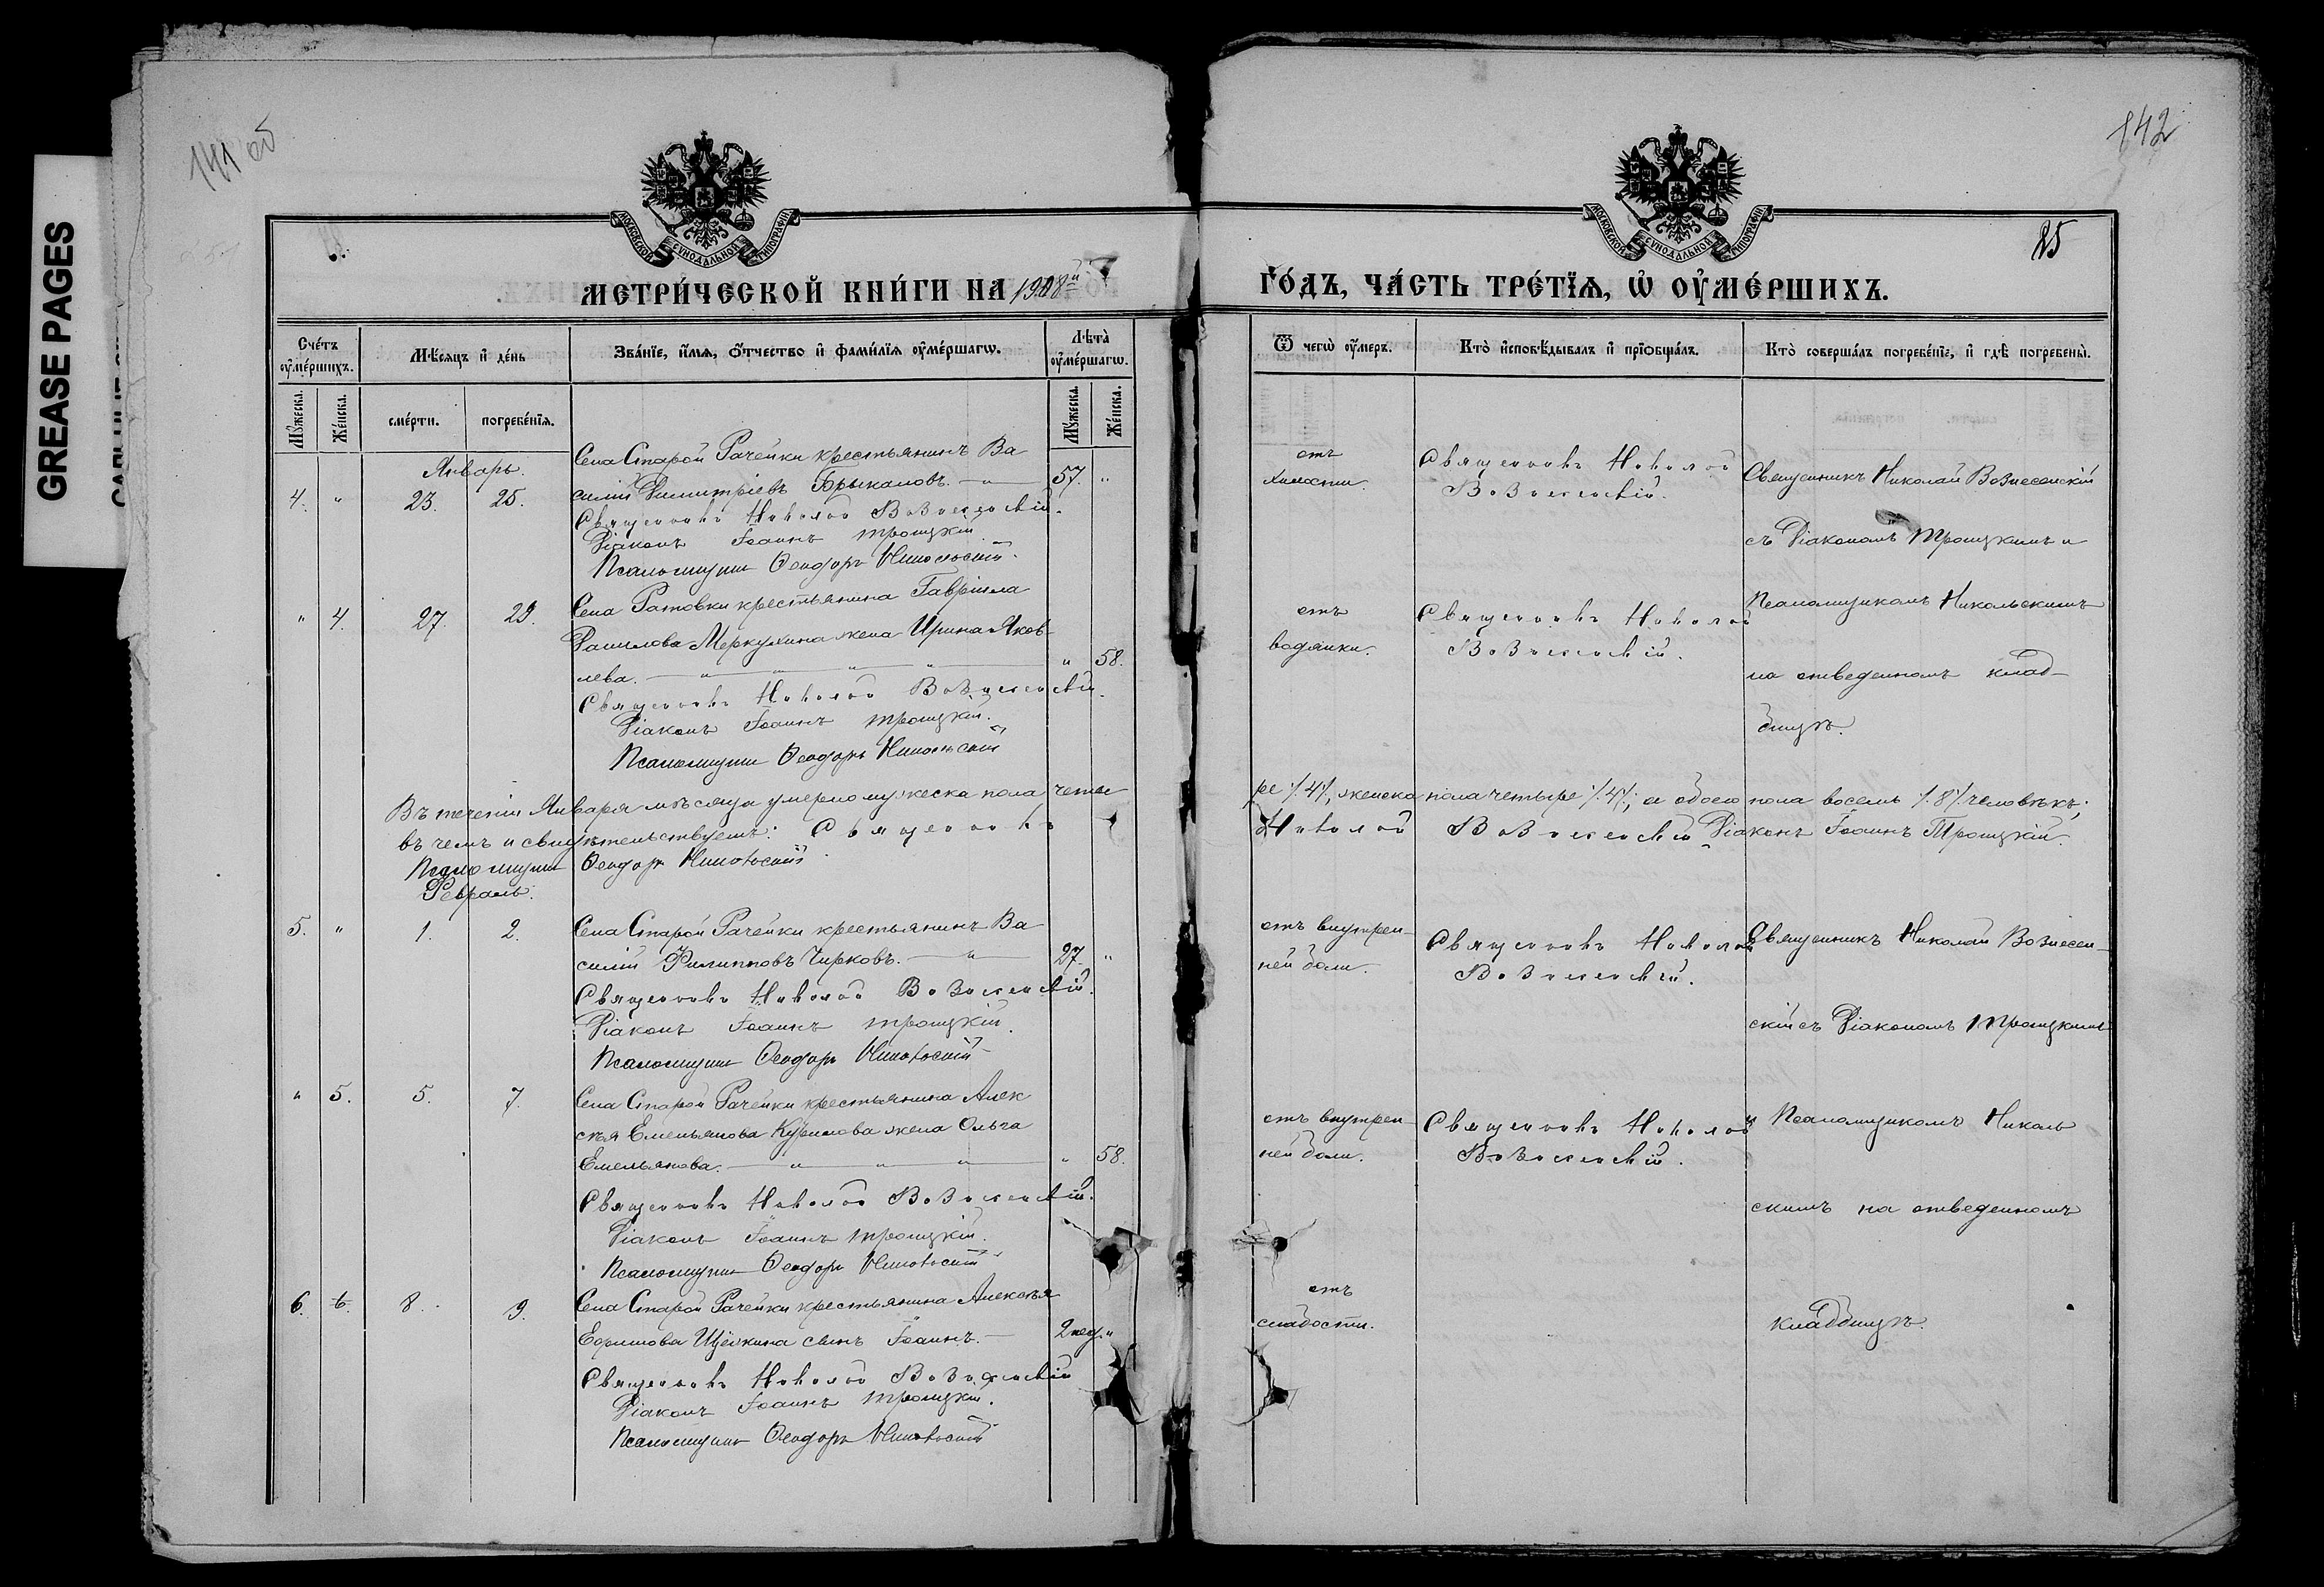 GREASE PAGES
141 об
142
25
МОСКОВСКОЙ СѴНОДАЛЬНОЙ ТИПОГРАФІИ
МОСКОВСКОЙ СѴНОДАЛЬНОЙ ТИПОГРАФІИ
МЕТРИ́ЧЕСКОЙ КНИ́ГИ НА 1908й
ГО́ДЪ, ЧА́СТЬ ТРЕ́ТЇѦ, Ѡ҆ ОУ҆МЕ́РШИХЪ.
Сче́тъ оу҆ме́ршихъ.
Мѣ́сяцъ и҆ де́нь
Зва́нїе, и҆́мѧ, ѻ҆́тчество и҆ фамı́лїѧ оу҆ме́ршагѡ.
Лѣ́та оу҆ме́ршагѡ.
Ѿ чегѡ̀ оу҆́меръ.
Кто̀ и҆сповѣ́дывалъ и҆ прїѡбща́лъ.
Кто̀ соверша́лъ погребе́нїе, и҆ гдѣ̀ погребены̀.
Мꙋ́жеска.
Же́нска.
сме́рти.
погребе́нїѧ.
Мꙋ́жеска.
Же́нска.
Январь.
4. " 23. 25.
Села Старой Рачейки крестьянинъ Ва
силій Димитріевъ Брыкаловъ. — " — 57. "
Священникъ Николай Вознесенскій.
Діаконъ Іоаннъ Троицкій.
Псаломщикъ Ѳеодоръ Никольскій.
отъ
Священникъ Николай
Вознесенскій.
Священникъ Николай Вознесенскій
съ Діакономъ Троицкимъ и
Псаломщикомъ Никольскимъ
на отведенномъ клад-
бищѣ.
" 4. 27. 29.
Села Ратовки крестьянина Гавріила
Данилова Меркулина жена Ирина Яков-
лева. — " — " — " — " 58.
Священникъ Николай Вознесенскій.
Діаконъ Іоаннъ Троицкій.
Псаломщикъ Ѳеодоръ Никольскій
отъ
водянки.
Священникъ Николай
Вознесенскій.
Въ теченіи Января мѣсяца умерло мужеска пола четы
ре /.4/, женска пола четыре /.4/; а обоего пола восемь /.8/ человѣкъ;
въ чемъ и свидѣтельствуемъ: Священникъ
Николай Вознесенскій Діаконъ Іоаннъ Троицкій.
Псаломщикъ Ѳеодоръ Никольскій.
Февраль.
5. " 1. 2.
Села Старой Рачейки крестьянинъ Ва
силій Филипповъ Чирковъ. — " — 27. "
Священникъ Николай Вознесенскій.
Діаконъ Іоаннъ Троицкій.
Псаломщикъ Ѳеодоръ Никольскій
отъ внутрен-
ней боли.
Священникъ Николай
Вознесенскій.
Священникъ Николай Вознесен-
скій съ Діакономъ Троицкимъ
Псаломщикомъ Николь
скимъ на отведенномъ
кладбищѣ.
" 5. 5. 7.
Села Старой Рачейки крестьянина Алек
сѣя Емельянова Курилова жена Ольга
Емельянова. — " — " — " — " 58.
Священникъ Николай Вознесенскій.
Діаконъ Іоаннъ Троицкій.
Псаломщикъ Ѳеодоръ Никольскій
отъ внутрен-
ней боли.
Священникъ Николай
Вознесенскій.
6. 8. 9.
Села Старой Рачейки крестьянина Алексѣя
Ефимова Щёлкина сынъ Іоаннъ. — 2 нед. "
Священникъ Николай Вознесенскій
Діаконъ Іоаннъ Троицкій.
Псаломщикъ Ѳеодоръ Никольскій
отъ
слабости.